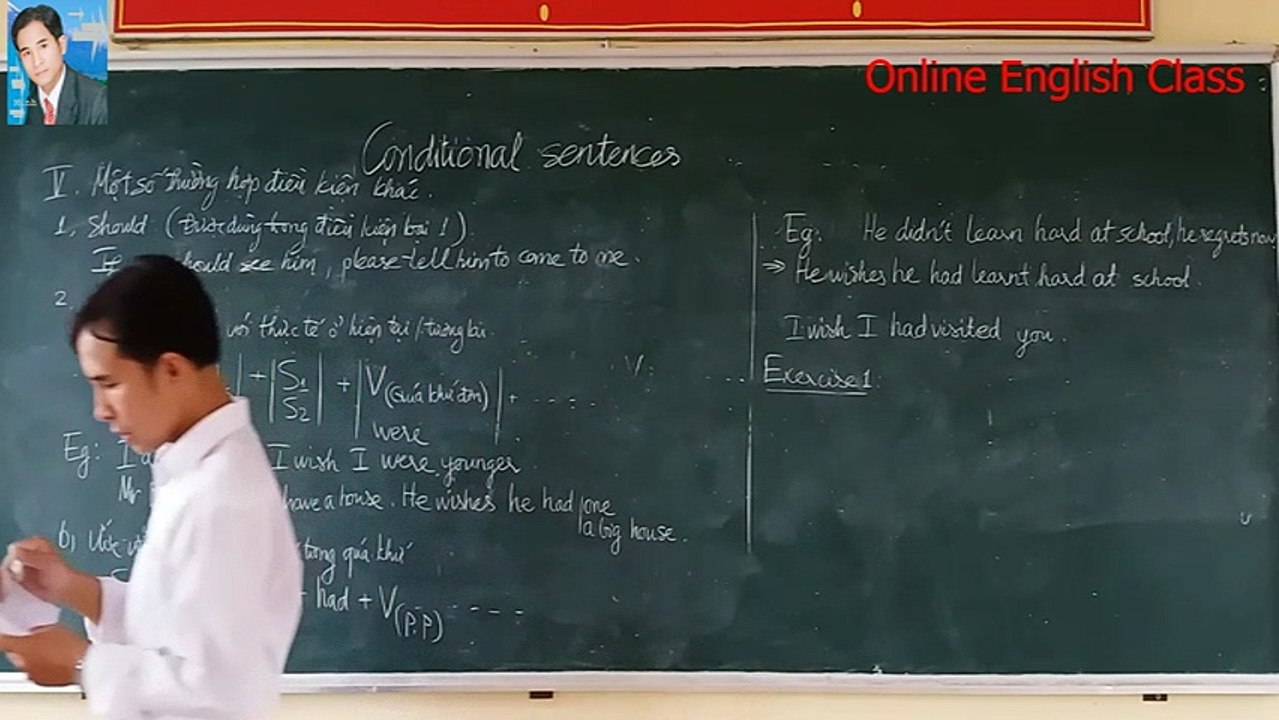 Online English Class
Conditional sentences
V. Một số trường hợp điều kiện khác.
1, Should (Được dùng trong điều kiện loại 1).
should see him, please tell him to come to me.
2.
với thực tế ở hiện tại / tương lai.
+ | S1 S2 | + | V(quá khứ đơn) were | + ----
Eg: I I wish I were younger
Mr have a house. He wishes he had one
a big house.
b, Ước trong quá khứ
had + V(p.p) ----
Eg: He didn't learn hard at school, he regrets now
=> He wishes he had learnt hard at school.
I wish I had visited you.
Exercise 1: